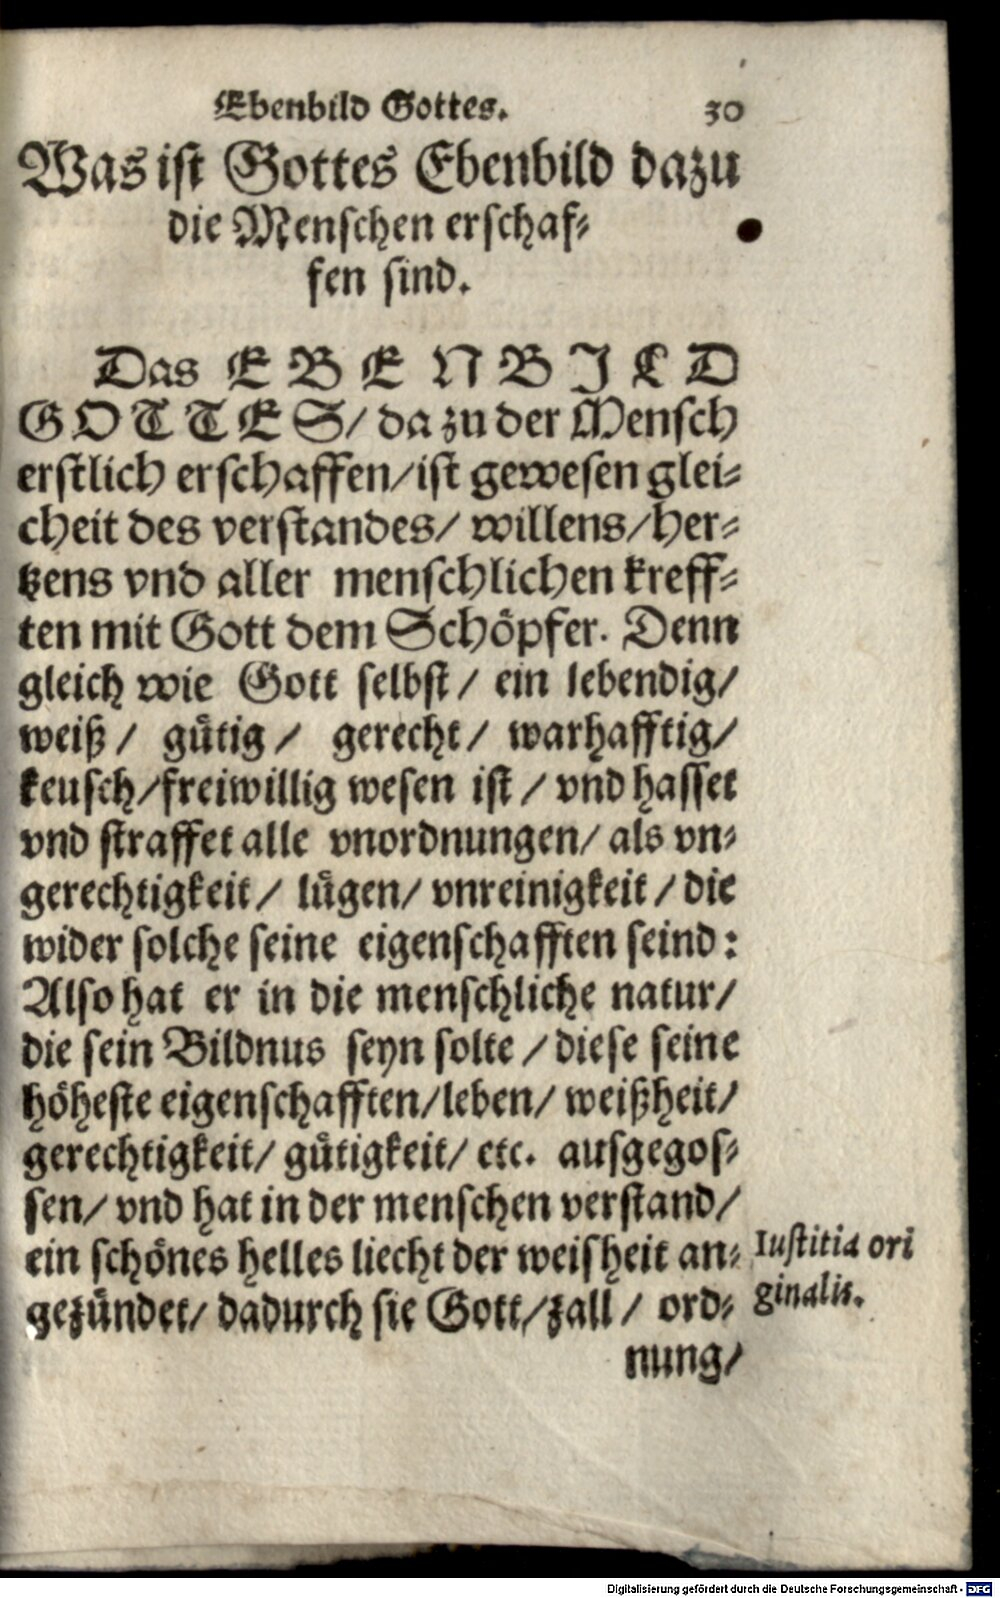 Ebenbild Gottes. 30
Was ist Gottes Ebenbild dazu
die Menschen erschaf⸗
fen sind.
Das EBENBILD
GOTTES/ da zu der Mensch
erstlich erschaffen/ ist gewesen glei⸗
cheit des verstandes/ willens/ her⸗
tzens vnd aller menschlichen kreff⸗
ten mit Gott dem Schöpfer. Denn
gleich wie Gott selbst/ ein lebendig/
weiß/ gütig/ gerecht/ warhafftig/
keusch/ freiwillig wesen ist/ vnd hasset
vnd straffet alle vnordnungen/ als vn⸗
gerechtigkeit/ lügen/ vnreinigkeit/ die
wider solche seine eigenschafften seind:
Also hat er in die menschliche natur/
die sein Bildnus seyn solte/ diese seine
höheste eigenschafften/ leben/ weißheit/
gerechtigkeit/ gütigkeit/ etc. ausgegos⸗
sen/ vnd hat in der menschen verstand/
ein schönes helles liecht der weisheit an⸗
gezündet/ dadurch sie Gott/ zall/ ord⸗
nung/
Iustitia ori
ginalis.
Digitalisierung gefördert durch die Deutsche Forschungsgemeinschaft - DFG